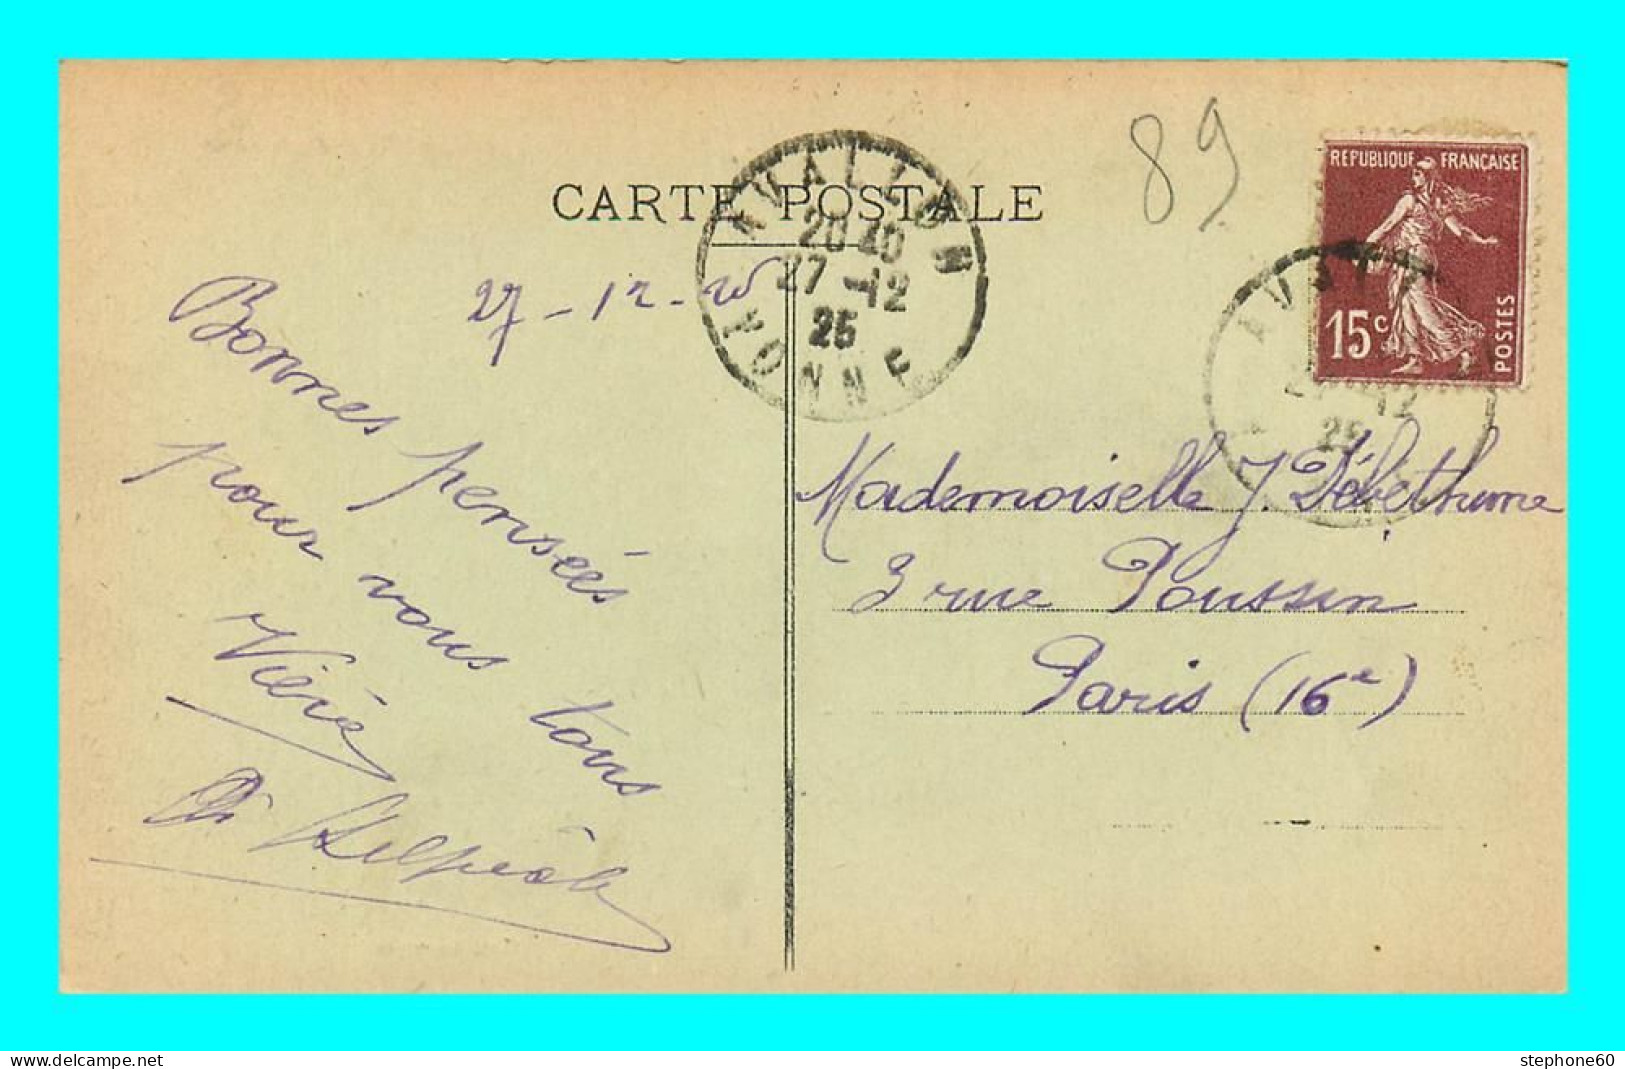 89
RÉPUBLIQUE FRANÇAISE
15c
POSTES
CARTE POSTALE
AVALLON
20 40
27 -12
25
YONNE
27-12-25
12
25
Bonnes pensées
pour vous tous
Mademoiselle J. Débethune
3 rue Poussin
Paris (16e)
stephone60